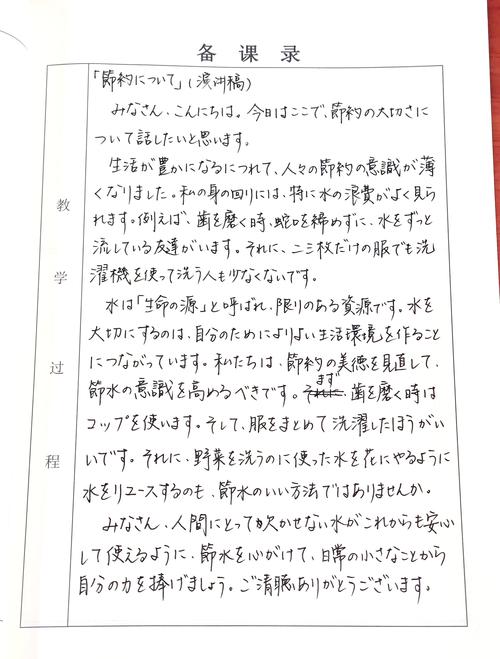 备课录
「節約について」(演讲稿)
みなさん、こんにちは。今日はここで、節約の大切さに
ついて話したいと思います。
生活が豊かになるにつれて、人々の節約の意識が薄
くなりました。私の身の回りには、特に水の浪費がよく見ら
れます。例えば、歯を磨く時、蛇口を締めずに、水をずっと
流している友達がいます。それに、二三枚だけの服でも洗
濯機を使って洗う人も少なくないです。
水は「生命の源」と呼ばれ、限りのある資源です。水を
大切にするのは、自分のためによりよい生活環境を作ること
につながっています。私たちは、節約の美徳を見直して、
節水の意識を高めるべきです。まず、歯を磨く時は
コップを使います。そして、服をまとめて洗濯したほうがい
いです。それに、野菜を洗うのに使った水を花にやるように
水をリユースするのも、節水のいい方法ではありませんか。
みなさん、人間にとって欠かせない水がこれからも安心
して使えるように、節水を心がけて、日常の小さなことから
自分の力を捧げましょう。ご清聴ありがとうございます。
教
学
过
程